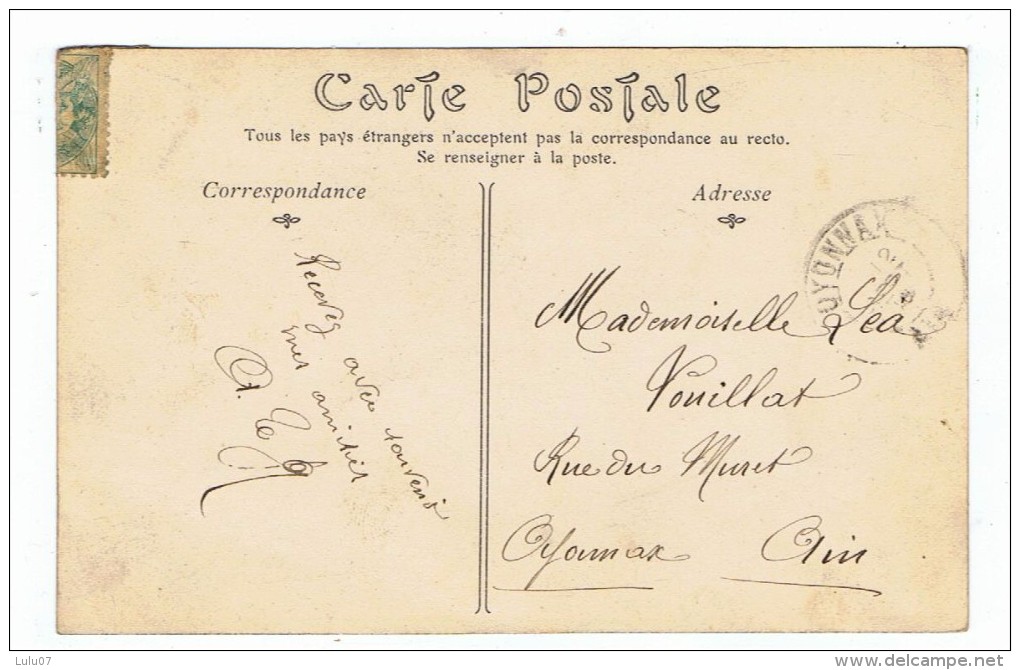 Carte Postale
Tous les pays étrangers n'acceptent pas la correspondance au recto.
Se renseigner à la poste.
Correspondance
Adresse
Recevez avec souvenir
mes amitiés
OYONNAX
Mademoiselle Léa
Vouillat
Rue du Muret
Oyonnax Ain
Lulu07
www.delcampe.net